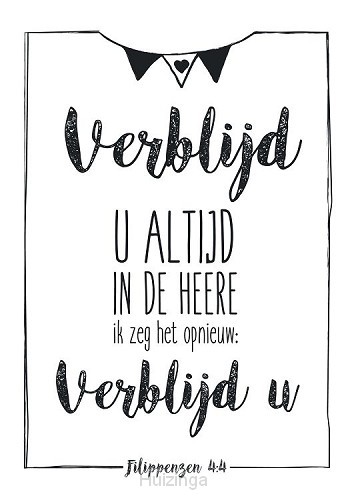 Verblijd
U ALTIJD
IN DE HEERE
ik zeg het opnieuw:
Verblijd u
Filippenzen 4:4
Huizinga